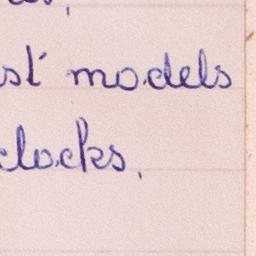 st models
clocks.